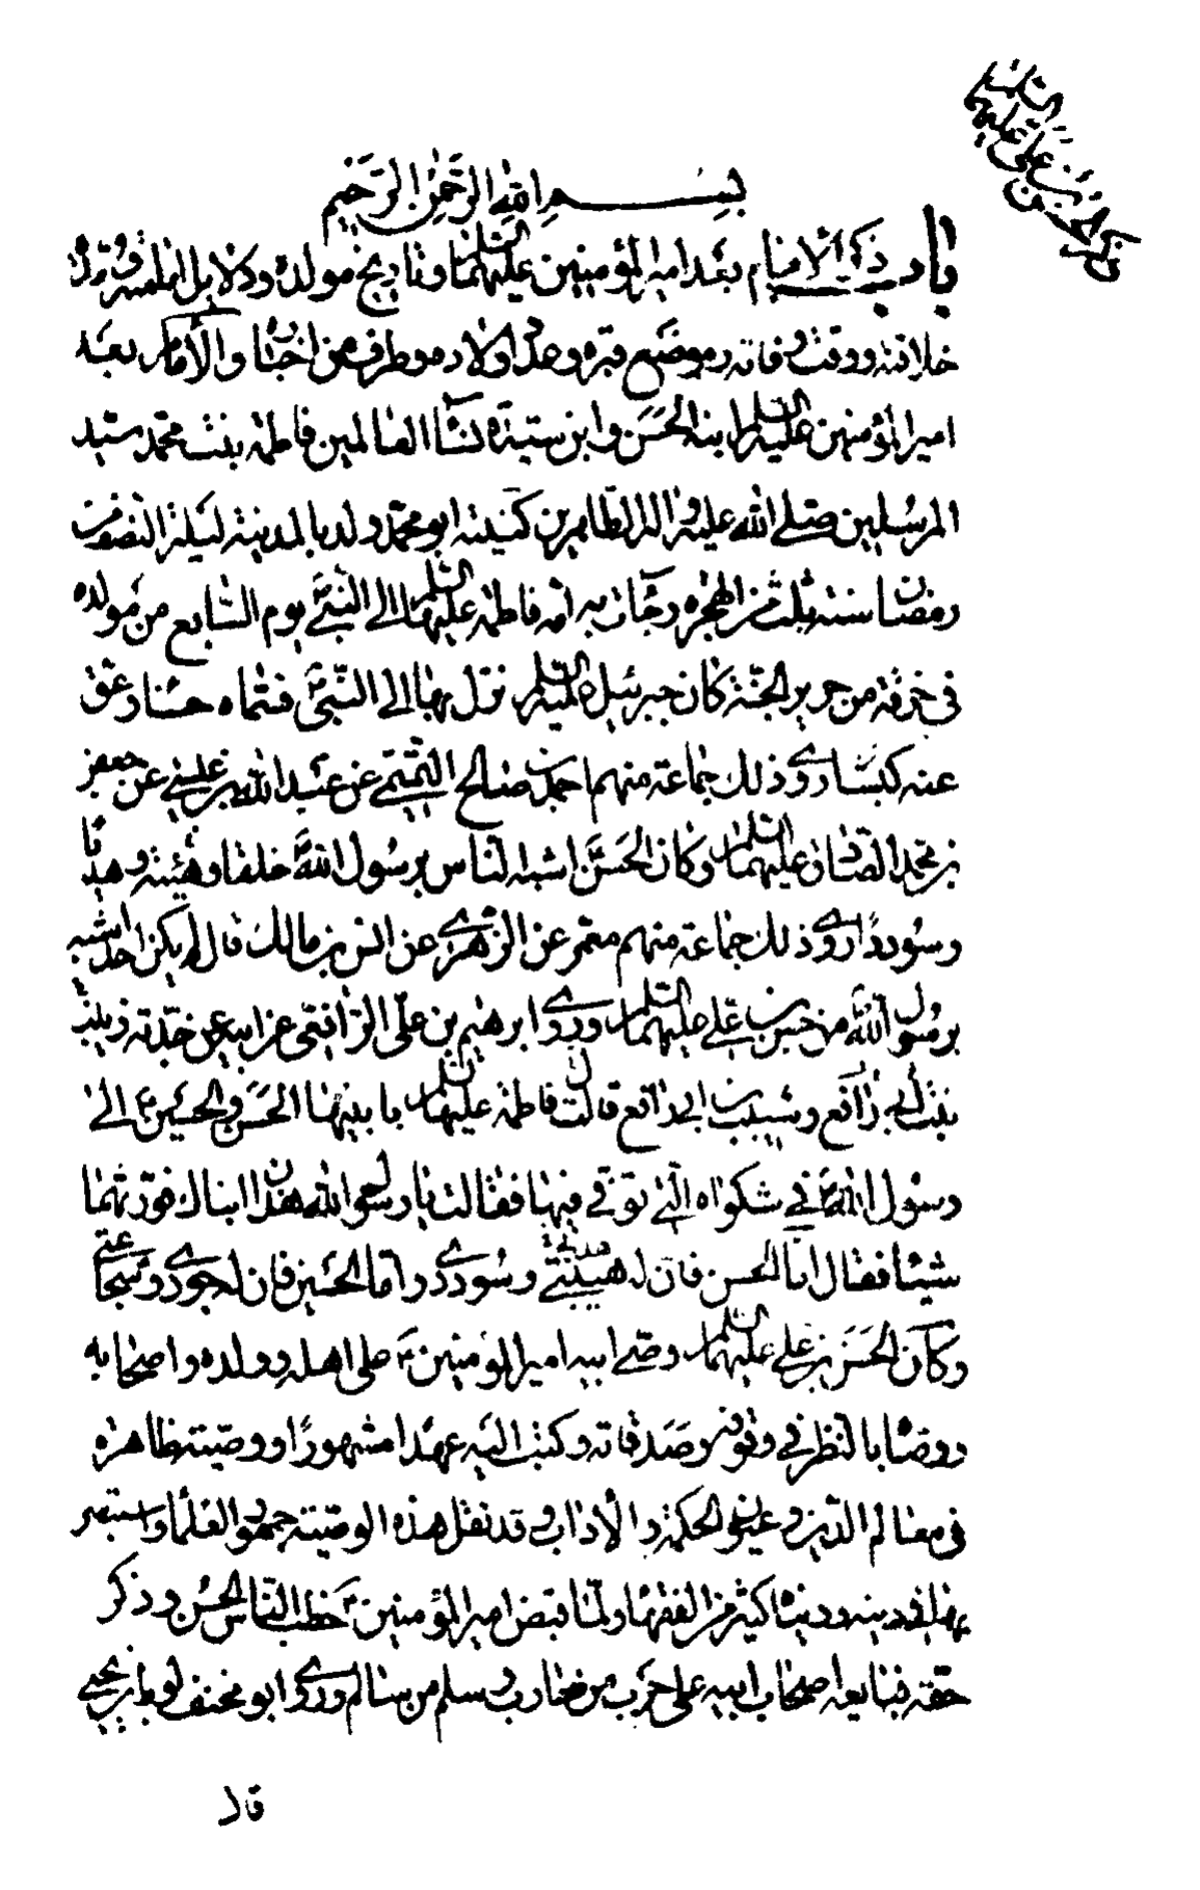 ذكر الحسن بن علي عليهما السلم
بسم الله الرحمن الرحيم
باب ذكر الامام بعد امير المؤمنين عليهما السلم وتاريخ مولده ودلايل امامته ومدة
خلافته ووقت وفاته وموضع قبره وعدد اولاده وطرف من اخباره والأمام بعد
امير المؤمنين عليه السلم ابنه الحسن وابن سيدة نساء العالمين فاطمة بنت محمد سيد
المرسلين صلى الله عليه واله الطاهرين كنيته ابو محمد ولد بالمدينة ليلة النصف من
رمضان سنة ثلث من الهجرة وجاءت به امه فاطمة عليها السلم الى النبي ص يوم السابع من مولده
في خرقة من حرير الجنة كان جبرئيل عليه السلم نزل بها الى النبي ص فسماه حسنا وعق
عنه كبشا روى ذلك جماعة منهم احمد بن صالح التميمي عن عبد الله بن عيسى عن جعفر
بن محمد الصادق عليهما السلم وكان الحسن اشبه الناس برسول الله ص خلقا وهيئة وهديا
وسوددًا روى ذلك جماعة منهم معمر عن الزهري عن انس بن مالك قال لم يكن احد اشبه
برسول الله ص من حسن بن علي عليهما السلم وروى ابرهيم بن علي الرافعي عن ابيه عن جدته زينب
بنت ابي رافع وشبيب بن ابي رافع قالت فاطمة عليها السلم بابنيها الحسن والحسين ع الى
رسول الله ص في شكواه التي توفي فيها فقالت يا رسول الله هذان ابناك فورثهما
شيئا فقال اما الحسن فان له هيبتي وسوددي واما الحسين فان له جودي وشجاعتي
وكان الحسن بن علي عليهما السلم وصى ابيه امير المؤمنين ع على اهله وولده واصحابه
ووصاه بالنظر في وقوفه وصدقاته وكتب اليه عهدا مشهورًا ووصيته ظاهرة
في معالم الدين وعيون الحكمة والأداب وقد نقل هذه الوصية جمهور العلماء واستبصر
بها في دينه ودنياه كثير من الفقهاء ولما قبض امير المؤمنين ع خطب الناس الحسن وذكر
حقه فبايعه اصحاب ابيه على حرب من حارب وسلم من سالم وروى ابو مخنف لوط بن يحيى
قال